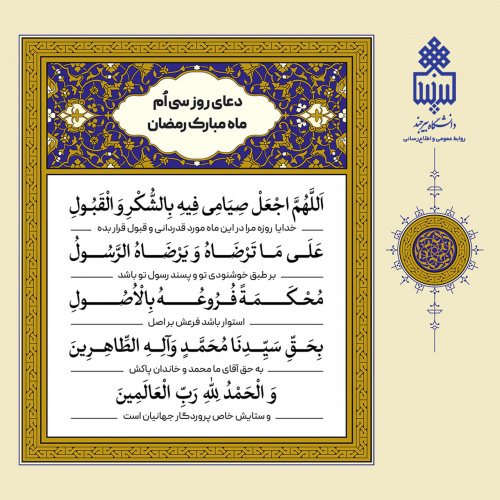 دعای روز سی اُم
ماه مبارک رمضان
اَللَّهُمَّ اجْعَلْ صِیَامِی فِیهِ بِالشُّکْرِ وَ الْقَبُولِ
خدایا روزه مرا در این ماه مورد قدردانی و قبول قرار بده
عَلَی مَا تَرْضَاهُ وَ یَرْضَاهُ الرَّسُولُ
بر طبق خوشنودی تو و پسند رسول تو باشد
مُحْکَمَةً فُرُوعُهُ بِالْأُصُولِ
استوار باشد فرعش بر اصل
بِحَقِّ سَیِّدِنَا مُحَمَّدٍ وَآلِهِ الطَّاهِرِینَ
به حق آقای ما محمد و خاندان پاکش
وَ الْحَمْدُ لِلَّهِ رَبِّ الْعَالَمِینَ
و ستایش خاص پروردگار جهانیان است
دانشگاه بیرجند
روابط عمومی و اطلاع‌رسانی